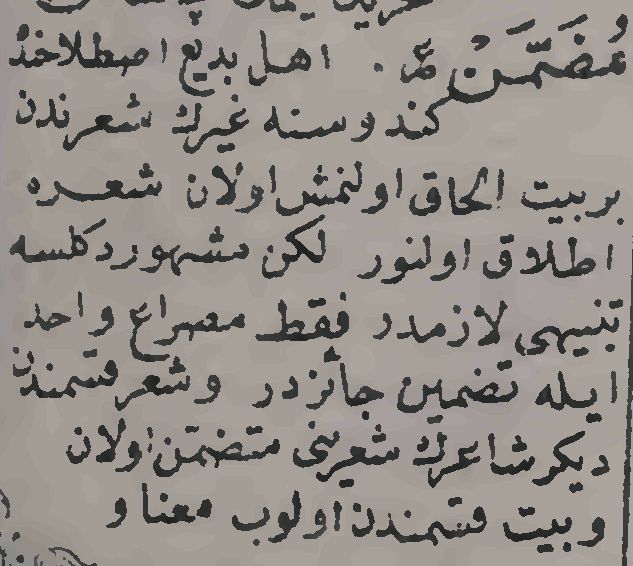 مُضَمَّنْ عـ . اهل بديع اصطلاحنده
كندوسنه غيرك شعرندن
بر بيت الحاق اولنمش اولان شعره
اطلاق اولنور لكن مشهور دكلسه
تنبيهى لازمدر فقط مصراع واحد
ايله تضمين جائزدر وشعر قسمندن
ديكر شاعرك شعرينى متضمن اولان
وبيت قسمندن اولوب معنا و